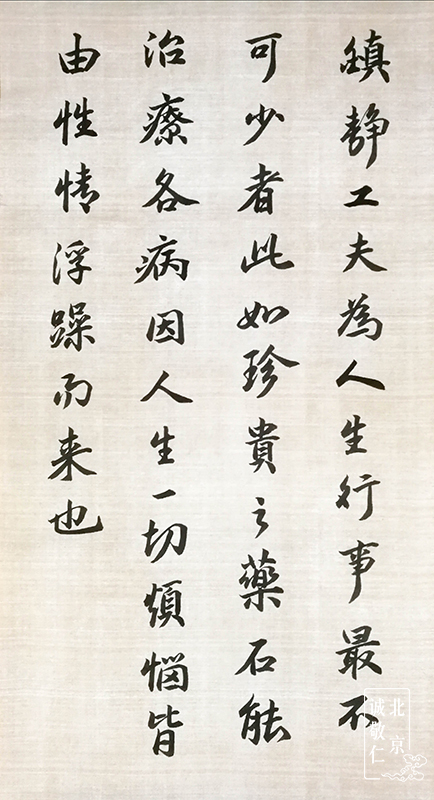 鎮静工夫為人生行事最不
可少者此如珍貴之藥石能
治療各病因人生一切煩惱皆
由性情浮躁而来也
北京
诚敬仁